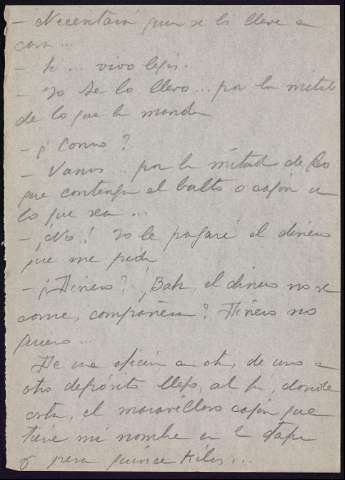 - Necesitará quien se lo lleve a
casa...
- Si... vivo lejos.
- Yo se lo llevo... por la mitad
de lo que le manda
- ¿Como?
- Vamos... por la mitad de lo
que contenga el bulto o cajón o
lo que sea...
- ¡No! Yo le pagaré el dinero
que me pida
- ¿Dinero? ¡Bah, el dinero no se
come, compañera! Dinero no
quiero...
De una oficina a otra, de uno a
otro depósito llego, al fin, donde
está, el maravilloso cajón que
tiene mi nombre en la tapa
y pesa quince kilos...